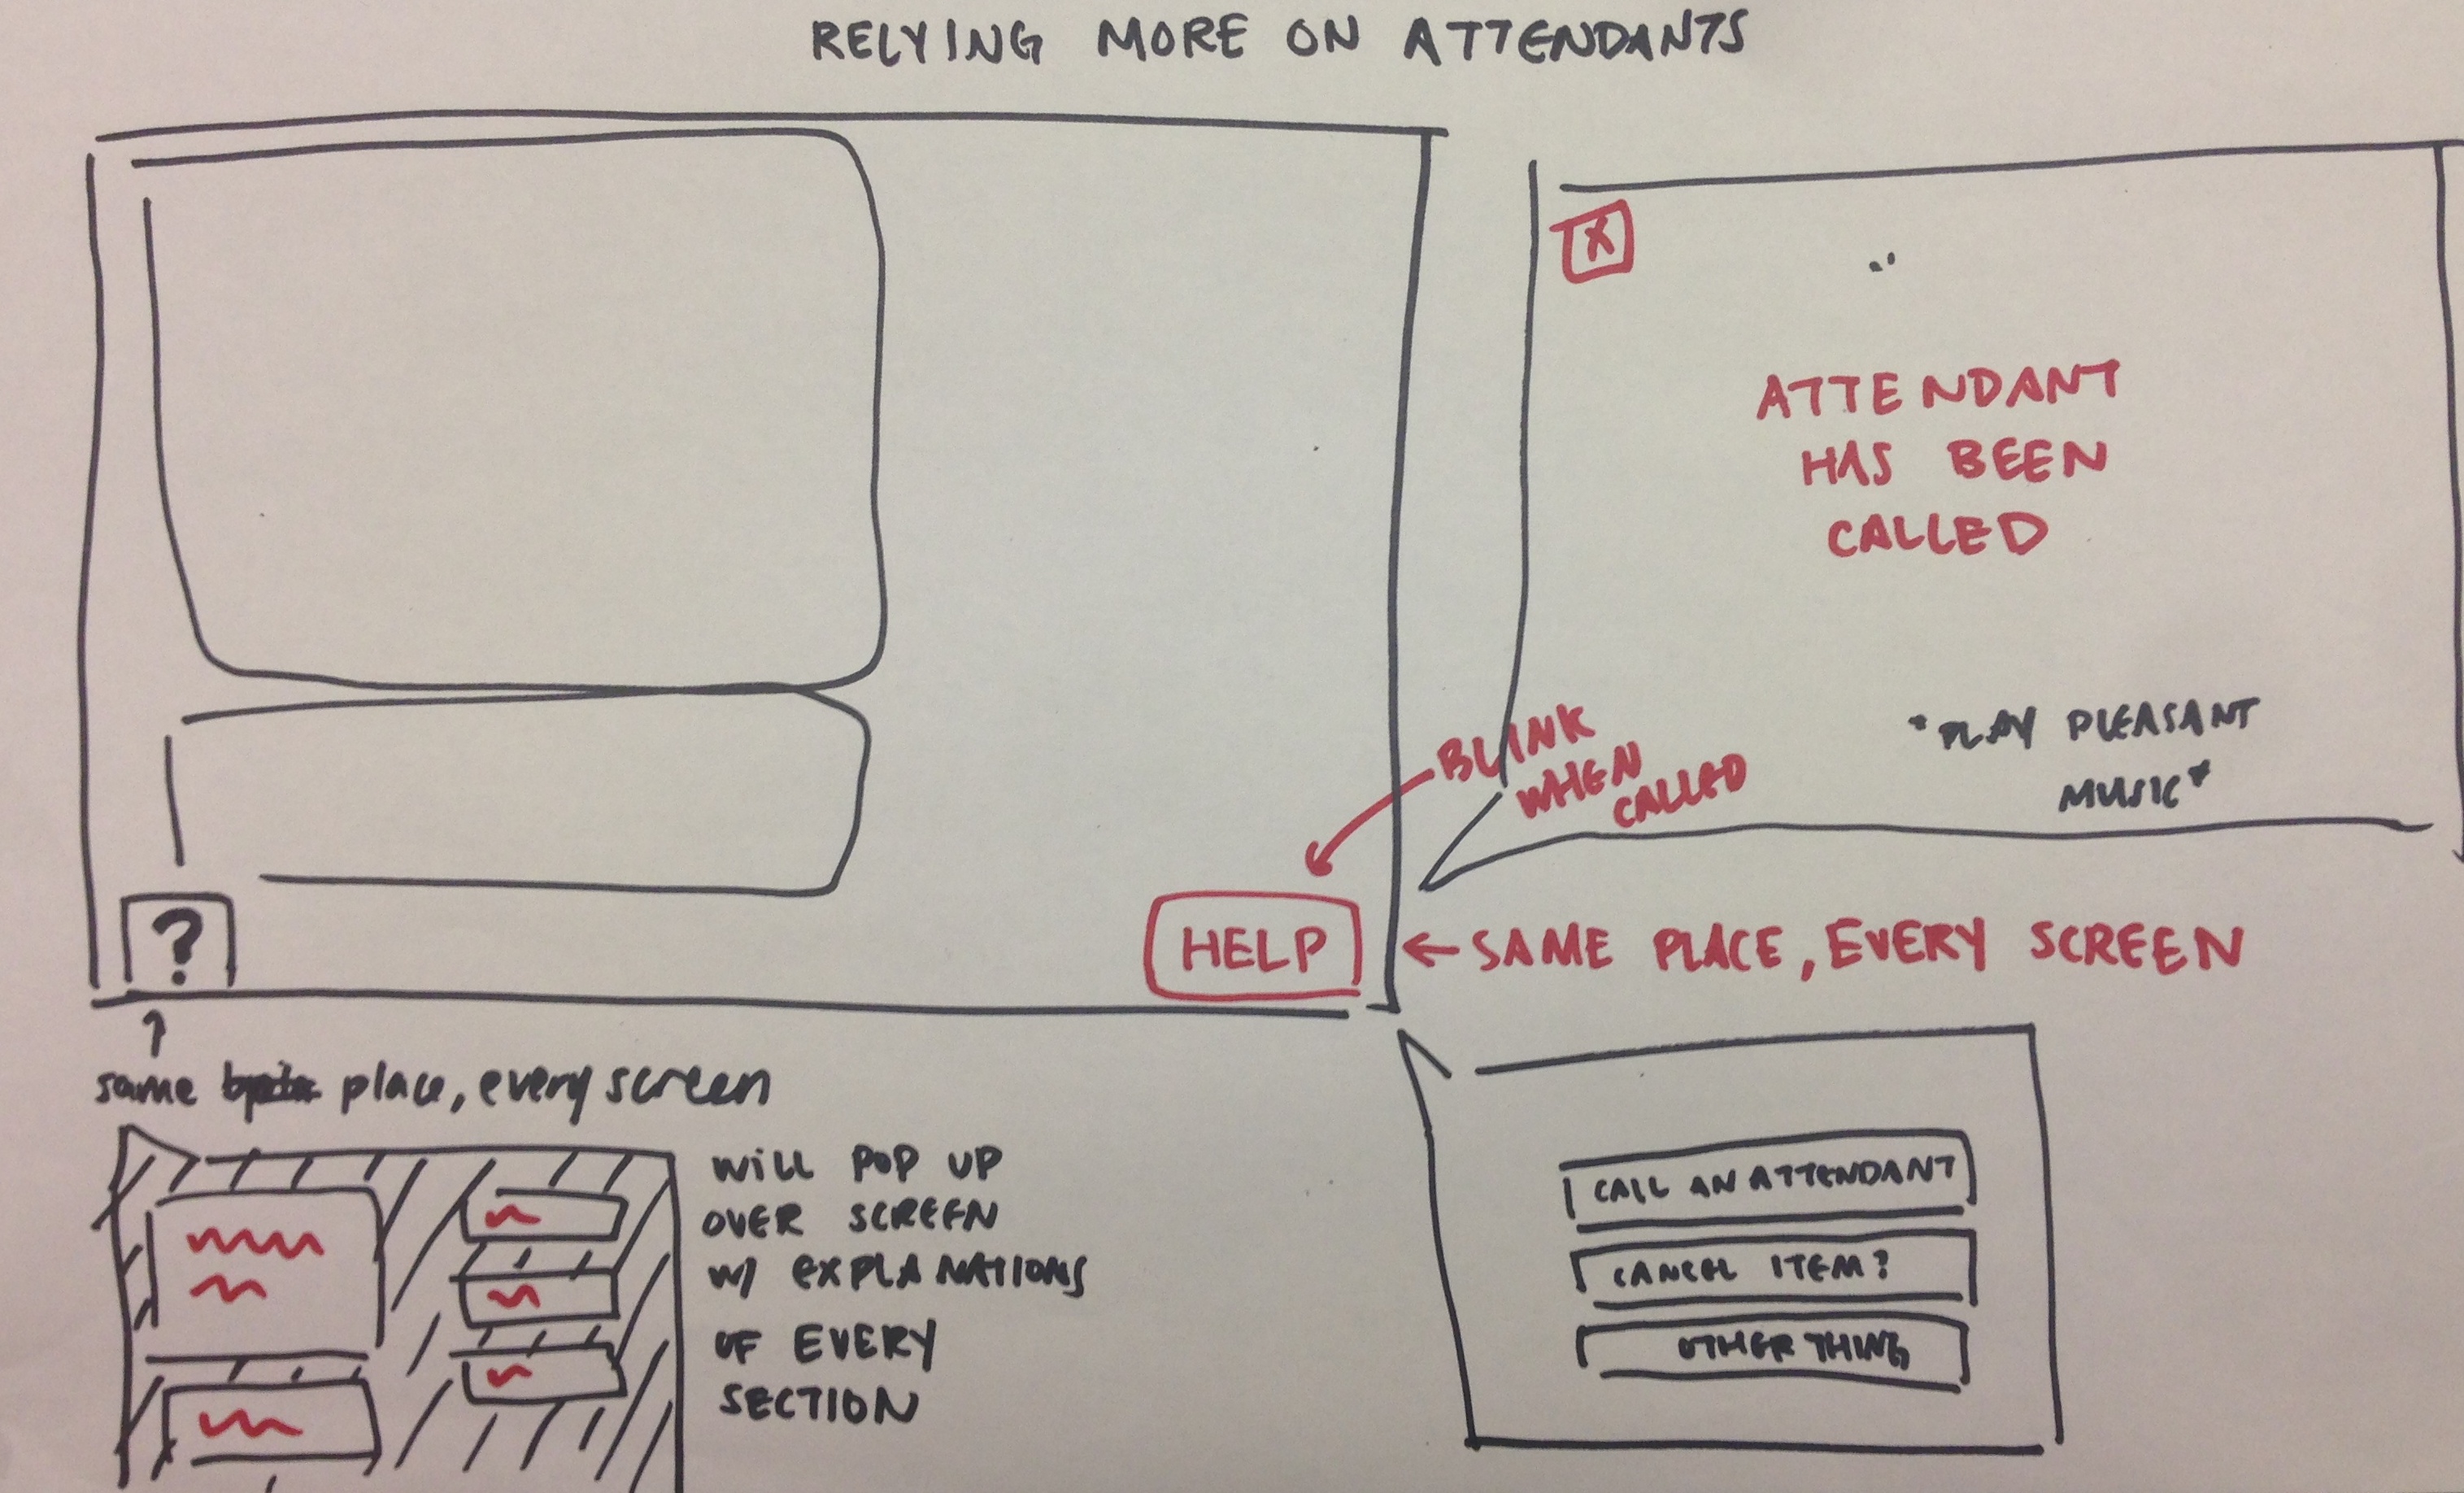 RELYING MORE ON ATTENDANTS
X
ATTENDANT
HAS BEEN
CALLED
*PLAY PLEASANT
MUSIC*
BLINK
WHEN
CALLED
?
HELP
← SAME PLACE, EVERY SCREEN
same place, every screen
WILL POP UP
OVER SCREEN
W/ EXPLANATIONS
OF EVERY
SECTION
CALL AN ATTENDANT
CANCEL ITEM?
OTHER THING